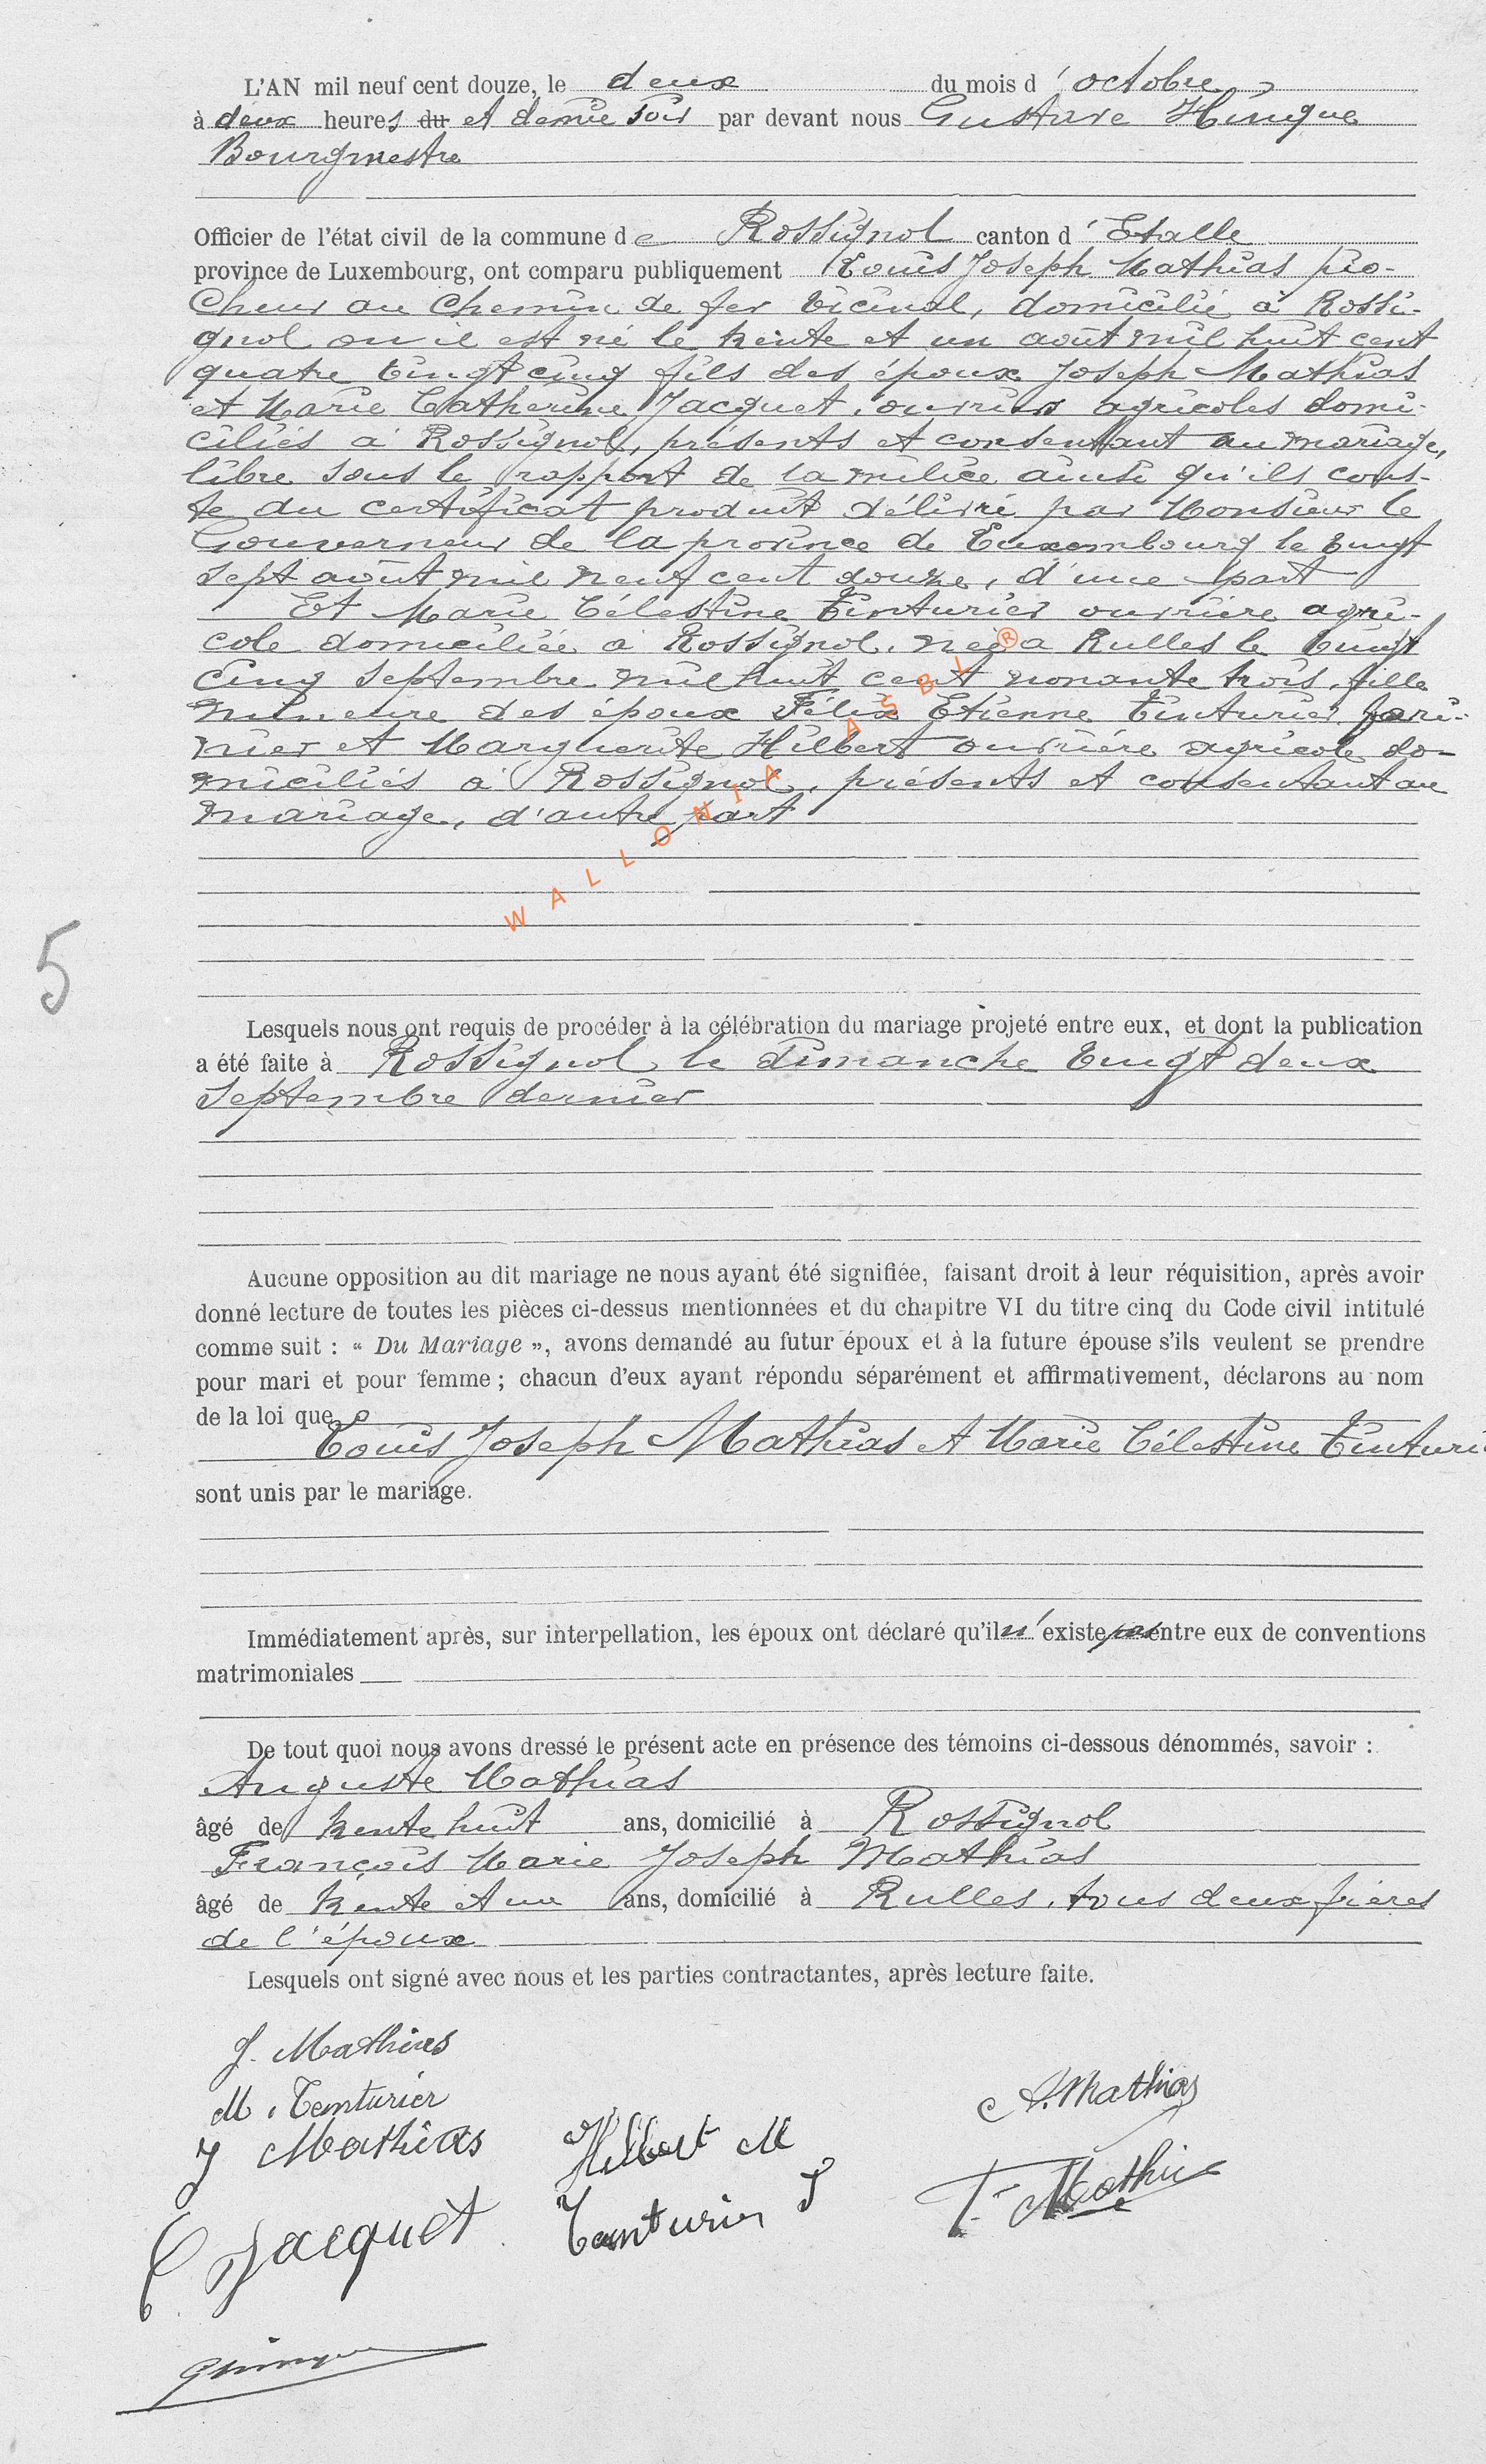 L'AN mil neuf cent douze, le deux du mois d'octobre
à deux heures du et demie soir par devant nous Gustave Hinque
Bourgmestre
Officier de l'état civil de la commune de Rossignol canton d'Etalle
province de Luxembourg, ont comparu publiquement Louis Joseph Mathias pio-
cheur au chemin de fer vicinal, domicilié à Rossi-
gnol où il est né le trente et un août mil huit cent
quatre vingt cinq fils des époux Joseph Mathias
et Marie Catherine Jacquet, ouvriers agricoles domi-
ciliés à Rossignol, présents et consentant au mariage,
libre sous le rapport de la milice ainsi qu'ils cons-
te du certificat produit délivré par Monsieur le
Gouverneur de la province de Luxembourg le vingt
sept août mil neuf cent douze, d'une part
Et Marie Célestine Tinturier ouvrière agri-
cole domiciliée à Rossignol, née à Rulles le vingt
cinq septembre mil huit cent nonante trois, fille
mineure des époux Félix Etienne Tinturier
et Marguerite Hilbert ouvrière agricole do-
miciliés à Rossignol, présents et consentant au
mariage, d'autre part
WALLONIA ASBL ®
5
Lesquels nous ont requis de procéder à la célébration du mariage projeté entre eux, et dont la publication
a été faite à Rossignol le dimanche vingt deux
septembre dernier
Aucune opposition au dit mariage ne nous ayant été signifiée, faisant droit à leur réquisition, après avoir
donné lecture de toutes les pièces ci-dessus mentionnées et du chapitre VI du titre cinq du Code civil intitulé
comme suit : « Du Mariage », avons demandé au futur époux et à la future épouse s'ils veulent se prendre
pour mari et pour femme ; chacun d'eux ayant répondu séparément et affirmativement, déclarons au nom
de la loi que
Louis Joseph Mathias et Marie Célestine Tinturi
sont unis par le mariage.
Immédiatement après, sur interpellation, les époux ont déclaré qu'il n'existe pas entre eux de conventions
matrimoniales
De tout quoi nous avons dressé le présent acte en présence des témoins ci-dessous dénommés, savoir :
Auguste Mathias
âgé de trente huit ans, domicilié à Rossignol
François Marie Joseph Mathias
âgé de trente et un ans, domicilié à Rulles, tous deux frères
de l'époux
Lesquels ont signé avec nous et les parties contractantes, après lecture faite.
J. Mathias
M. Tenturier
A. Mathias
J Mathias
Hilbert M
F. Mathias
C Jacquet
Tenturier F